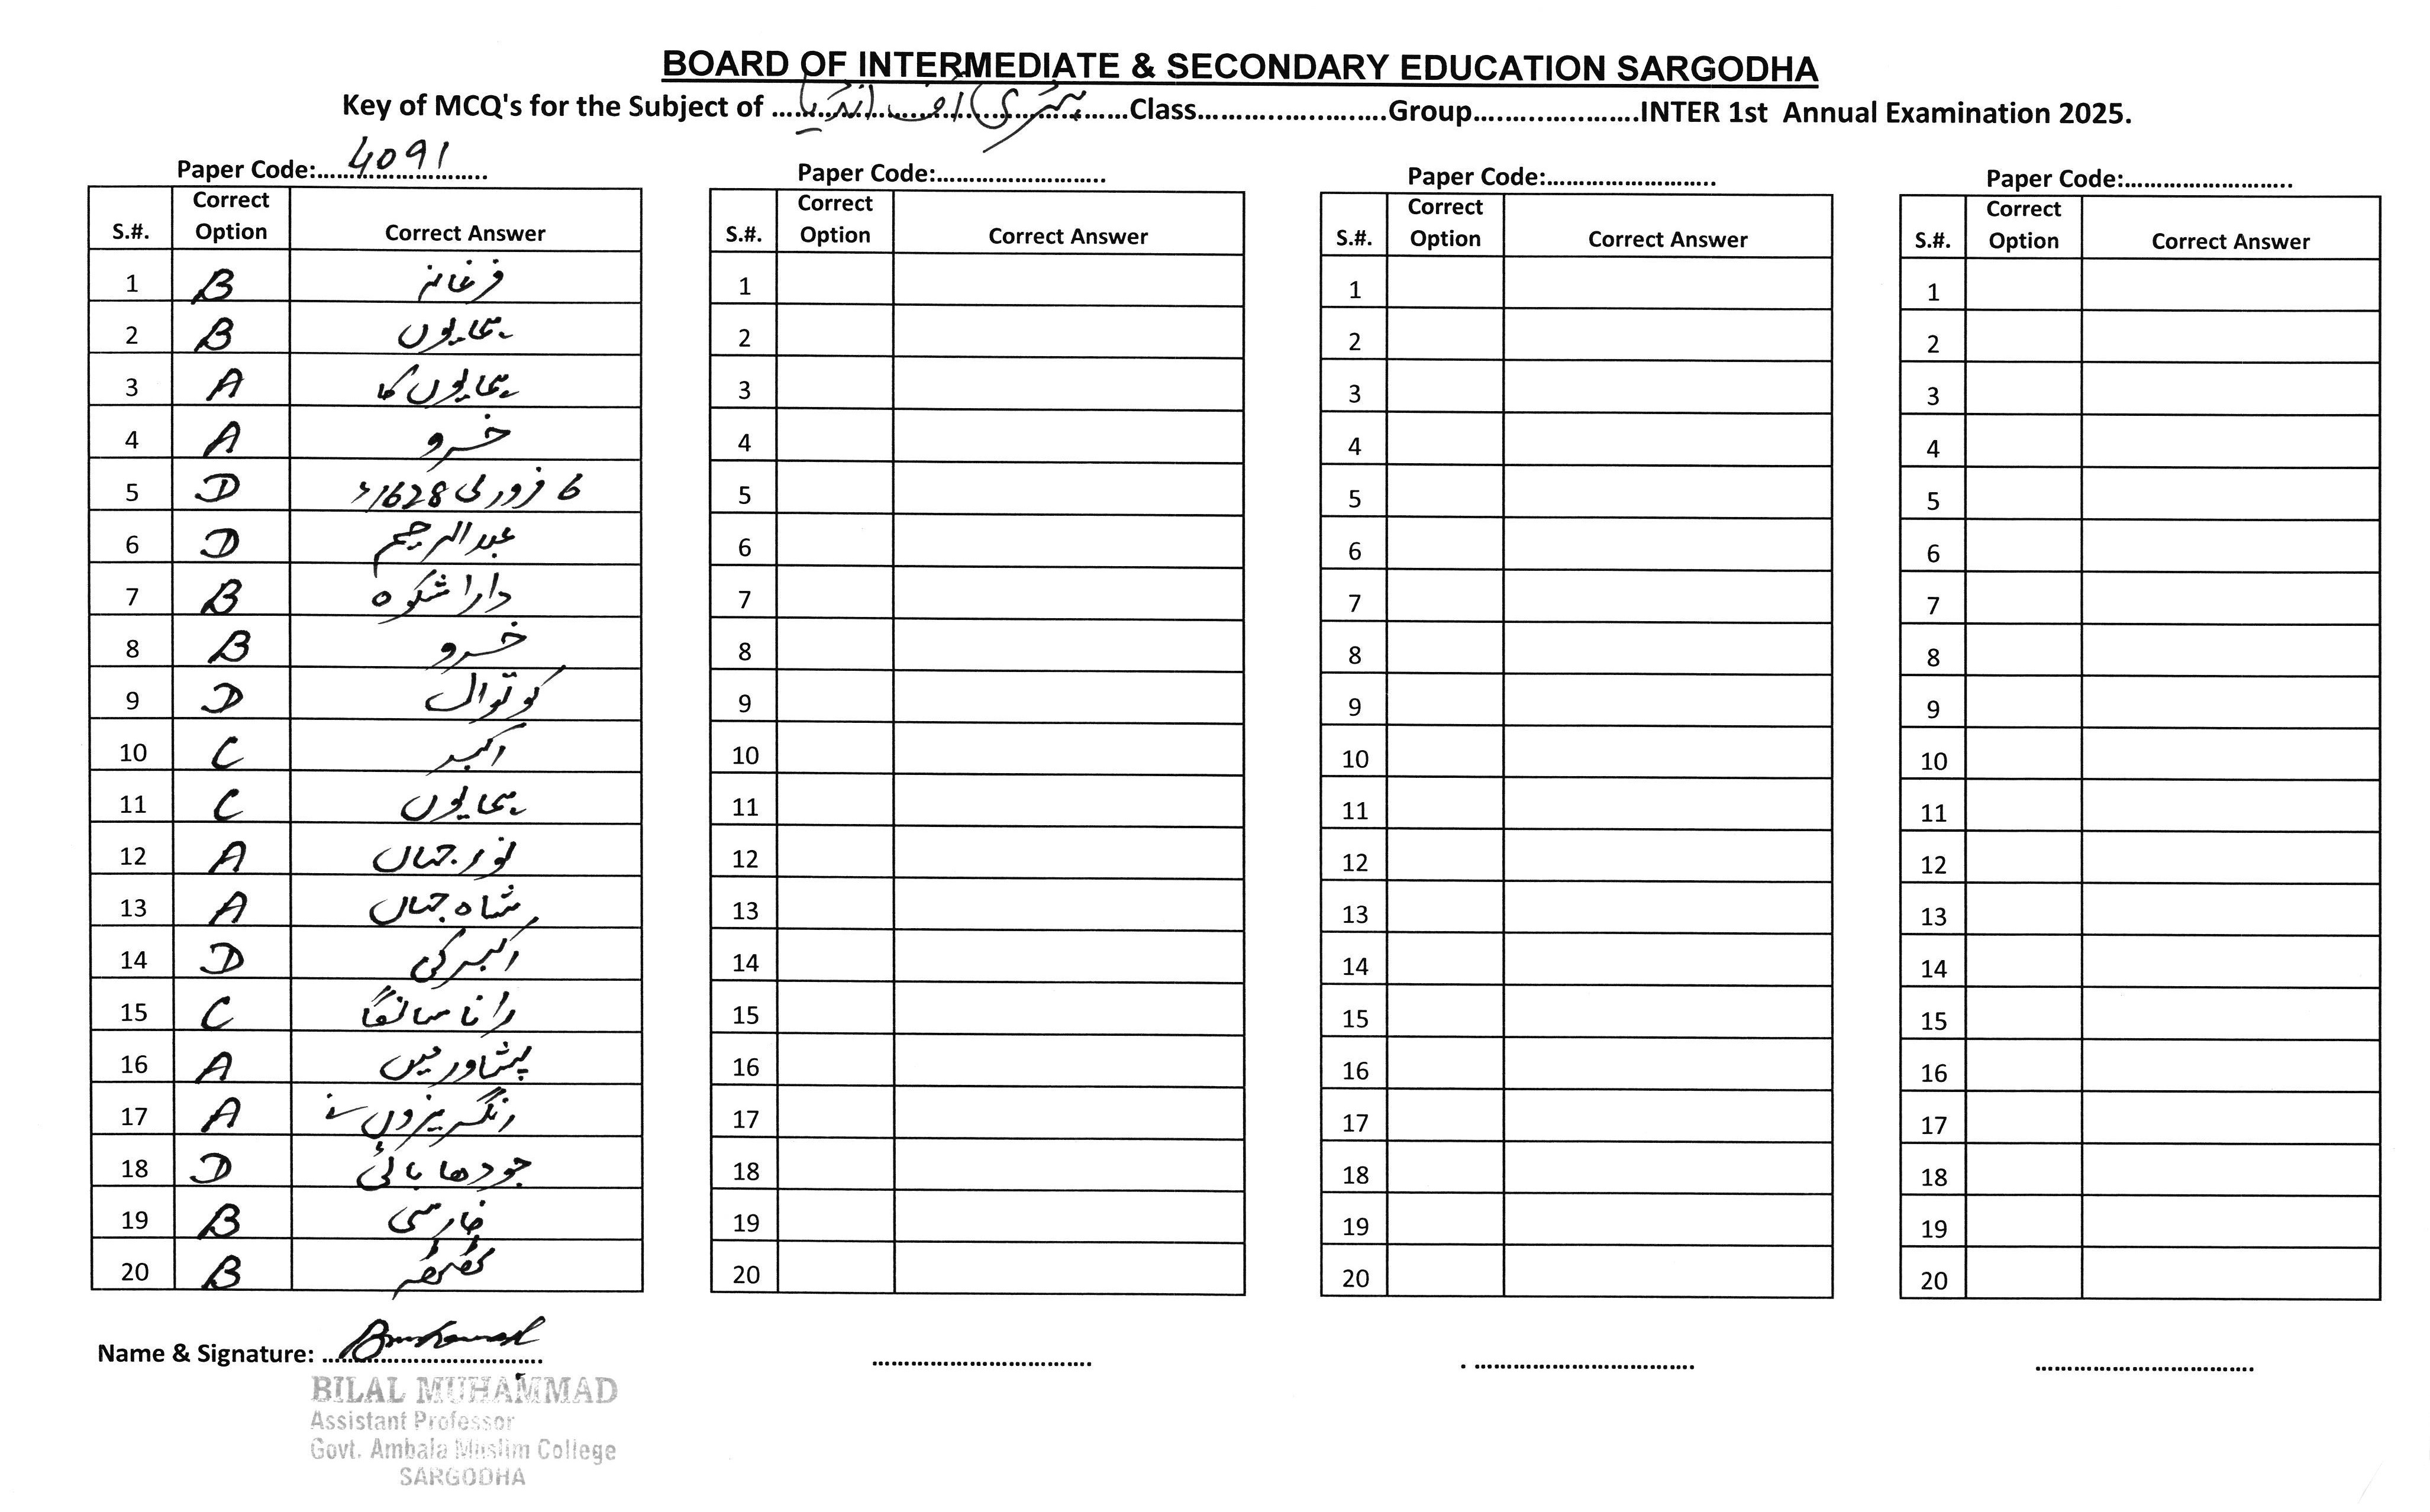 BOARD OF INTERMEDIATE & SECONDARY EDUCATION SARGODHA
Key of MCQ's for the Subject of ہسٹری آف انڈیا Class........................Group......................INTER 1st Annual Examination 2025.
Paper Code: 4091
S.#. Correct Option Correct Answer
1 B فرغانہ
2 B ہمایوں
3 A ہمایوں کا
4 A خسرو
5 D 6 فروری 1628ء
6 D عبدالرحیم
7 B دارا شکوہ
8 B خسرو
9 D کوتوال
10 C اکبر
11 C ہمایوں
12 A نور جہاں
13 A شاہ جہاں
14 D اکبر کی
15 C رانا سانگا
16 A پشاور میں
17 A انگریزوں نے
18 D جودھا بائی
19 B فارسی
20 B
Name & Signature:
BILAL MUHAMMAD
Assistant Professor
Govt. Ambala Muslim College
SARGODHA
Paper Code:........................
S.#. Correct Option Correct Answer
1
2
3
4
5
6
7
8
9
10
11
12
13
14
15
16
17
18
19
20
Paper Code:........................
S.#. Correct Option Correct Answer
1
2
3
4
5
6
7
8
9
10
11
12
13
14
15
16
17
18
19
20
Paper Code:........................
S.#. Correct Option Correct Answer
1
2
3
4
5
6
7
8
9
10
11
12
13
14
15
16
17
18
19
20